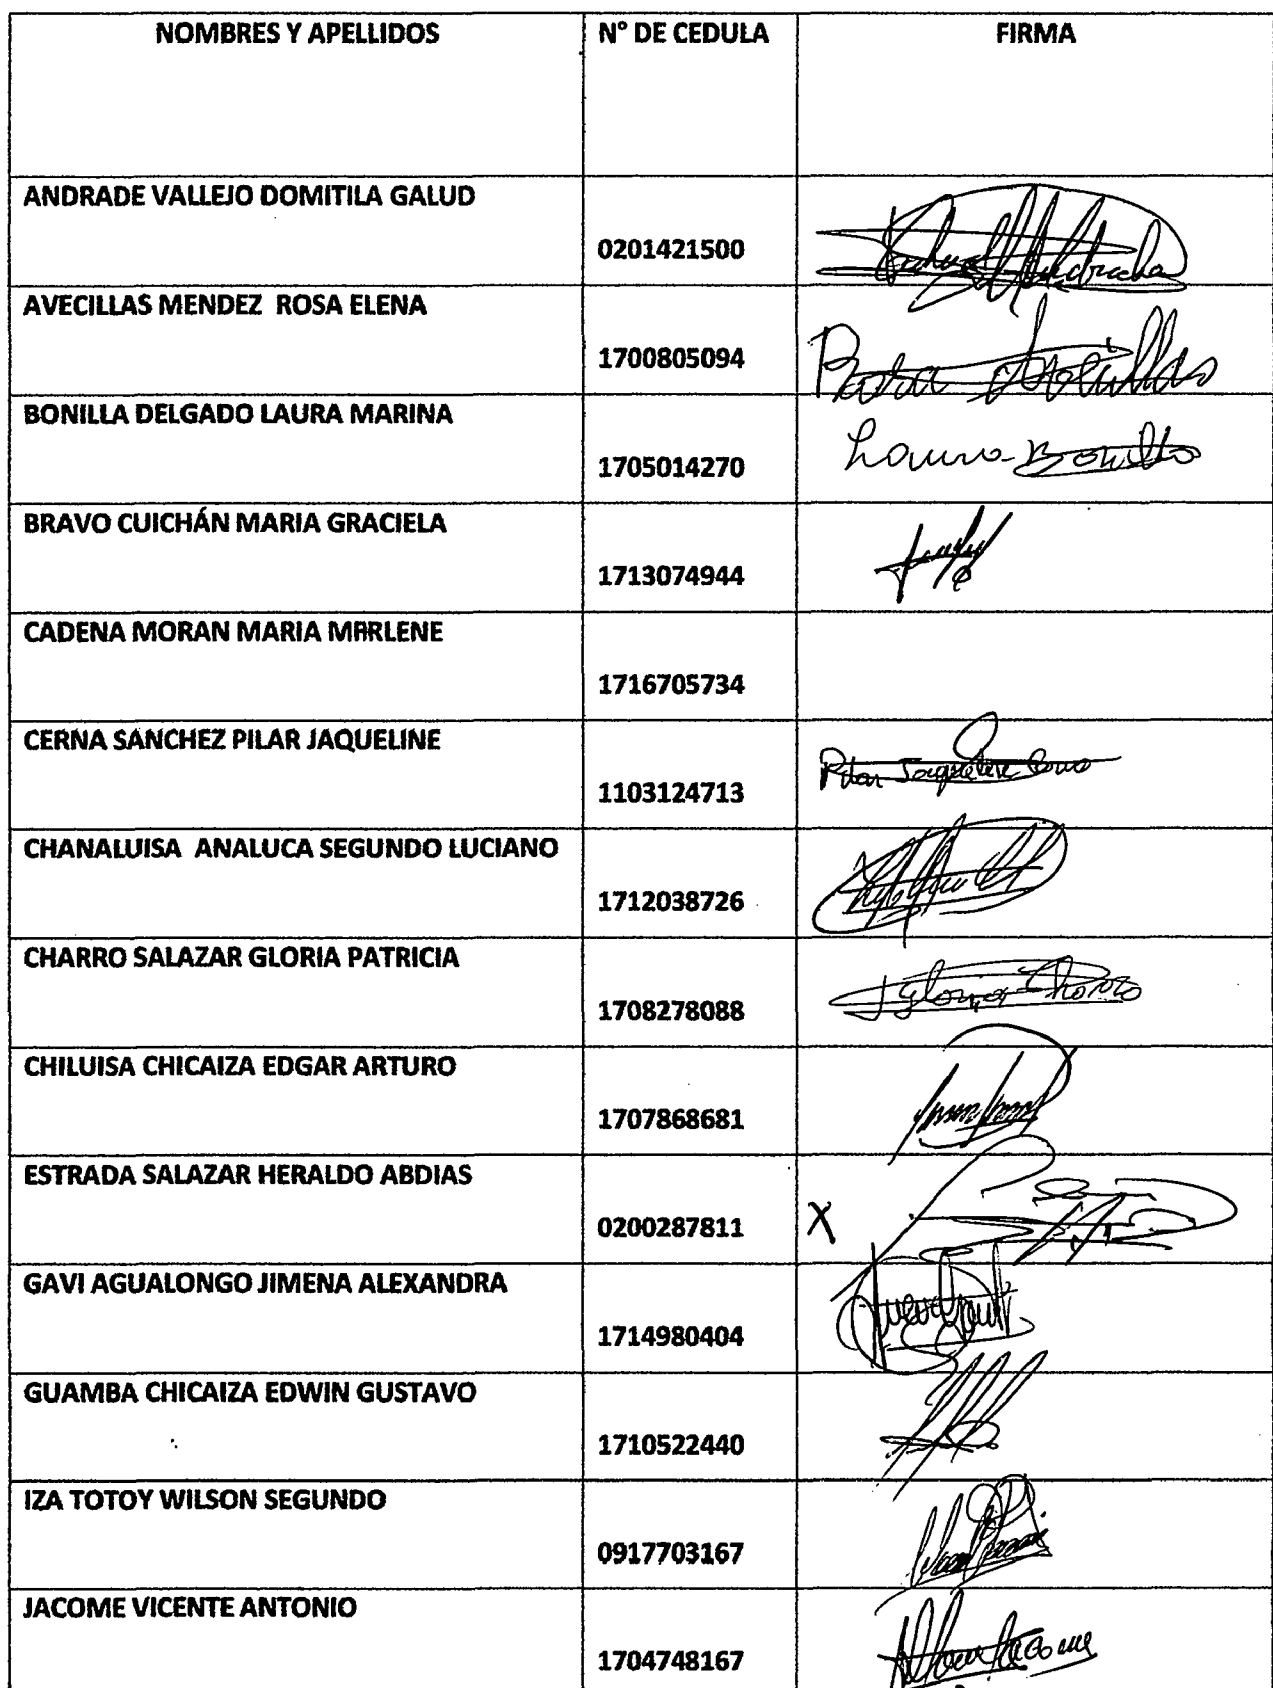 NOMBRES Y APELLIDOS N° DE CEDULA FIRMA
ANDRADE VALLEJO DOMITILA GALUD
0201421500
AVECILLAS MENDEZ ROSA ELENA
1700805094 Rosa Avecillas
BONILLA DELGADO LAURA MARINA
1705014270 Laura Bonilla
BRAVO CUICHÁN MARIA GRACIELA
1713074944
CADENA MORAN MARIA MARLENE
1716705734
CERNA SANCHEZ PILAR JAQUELINE
1103124713 Pilar Jaqueline Cerna
CHANALUISA ANALUCA SEGUNDO LUCIANO
1712038726
CHARRO SALAZAR GLORIA PATRICIA
1708278088 Gloria Charro
CHILUISA CHICAIZA EDGAR ARTURO
1707868681
ESTRADA SALAZAR HERALDO ABDIAS
0200287811 X
GAVI AGUALONGO JIMENA ALEXANDRA
1714980404
GUAMBA CHICAIZA EDWIN GUSTAVO
1710522440
IZA TOTOY WILSON SEGUNDO
0917703167
JACOME VICENTE ANTONIO
1704748167